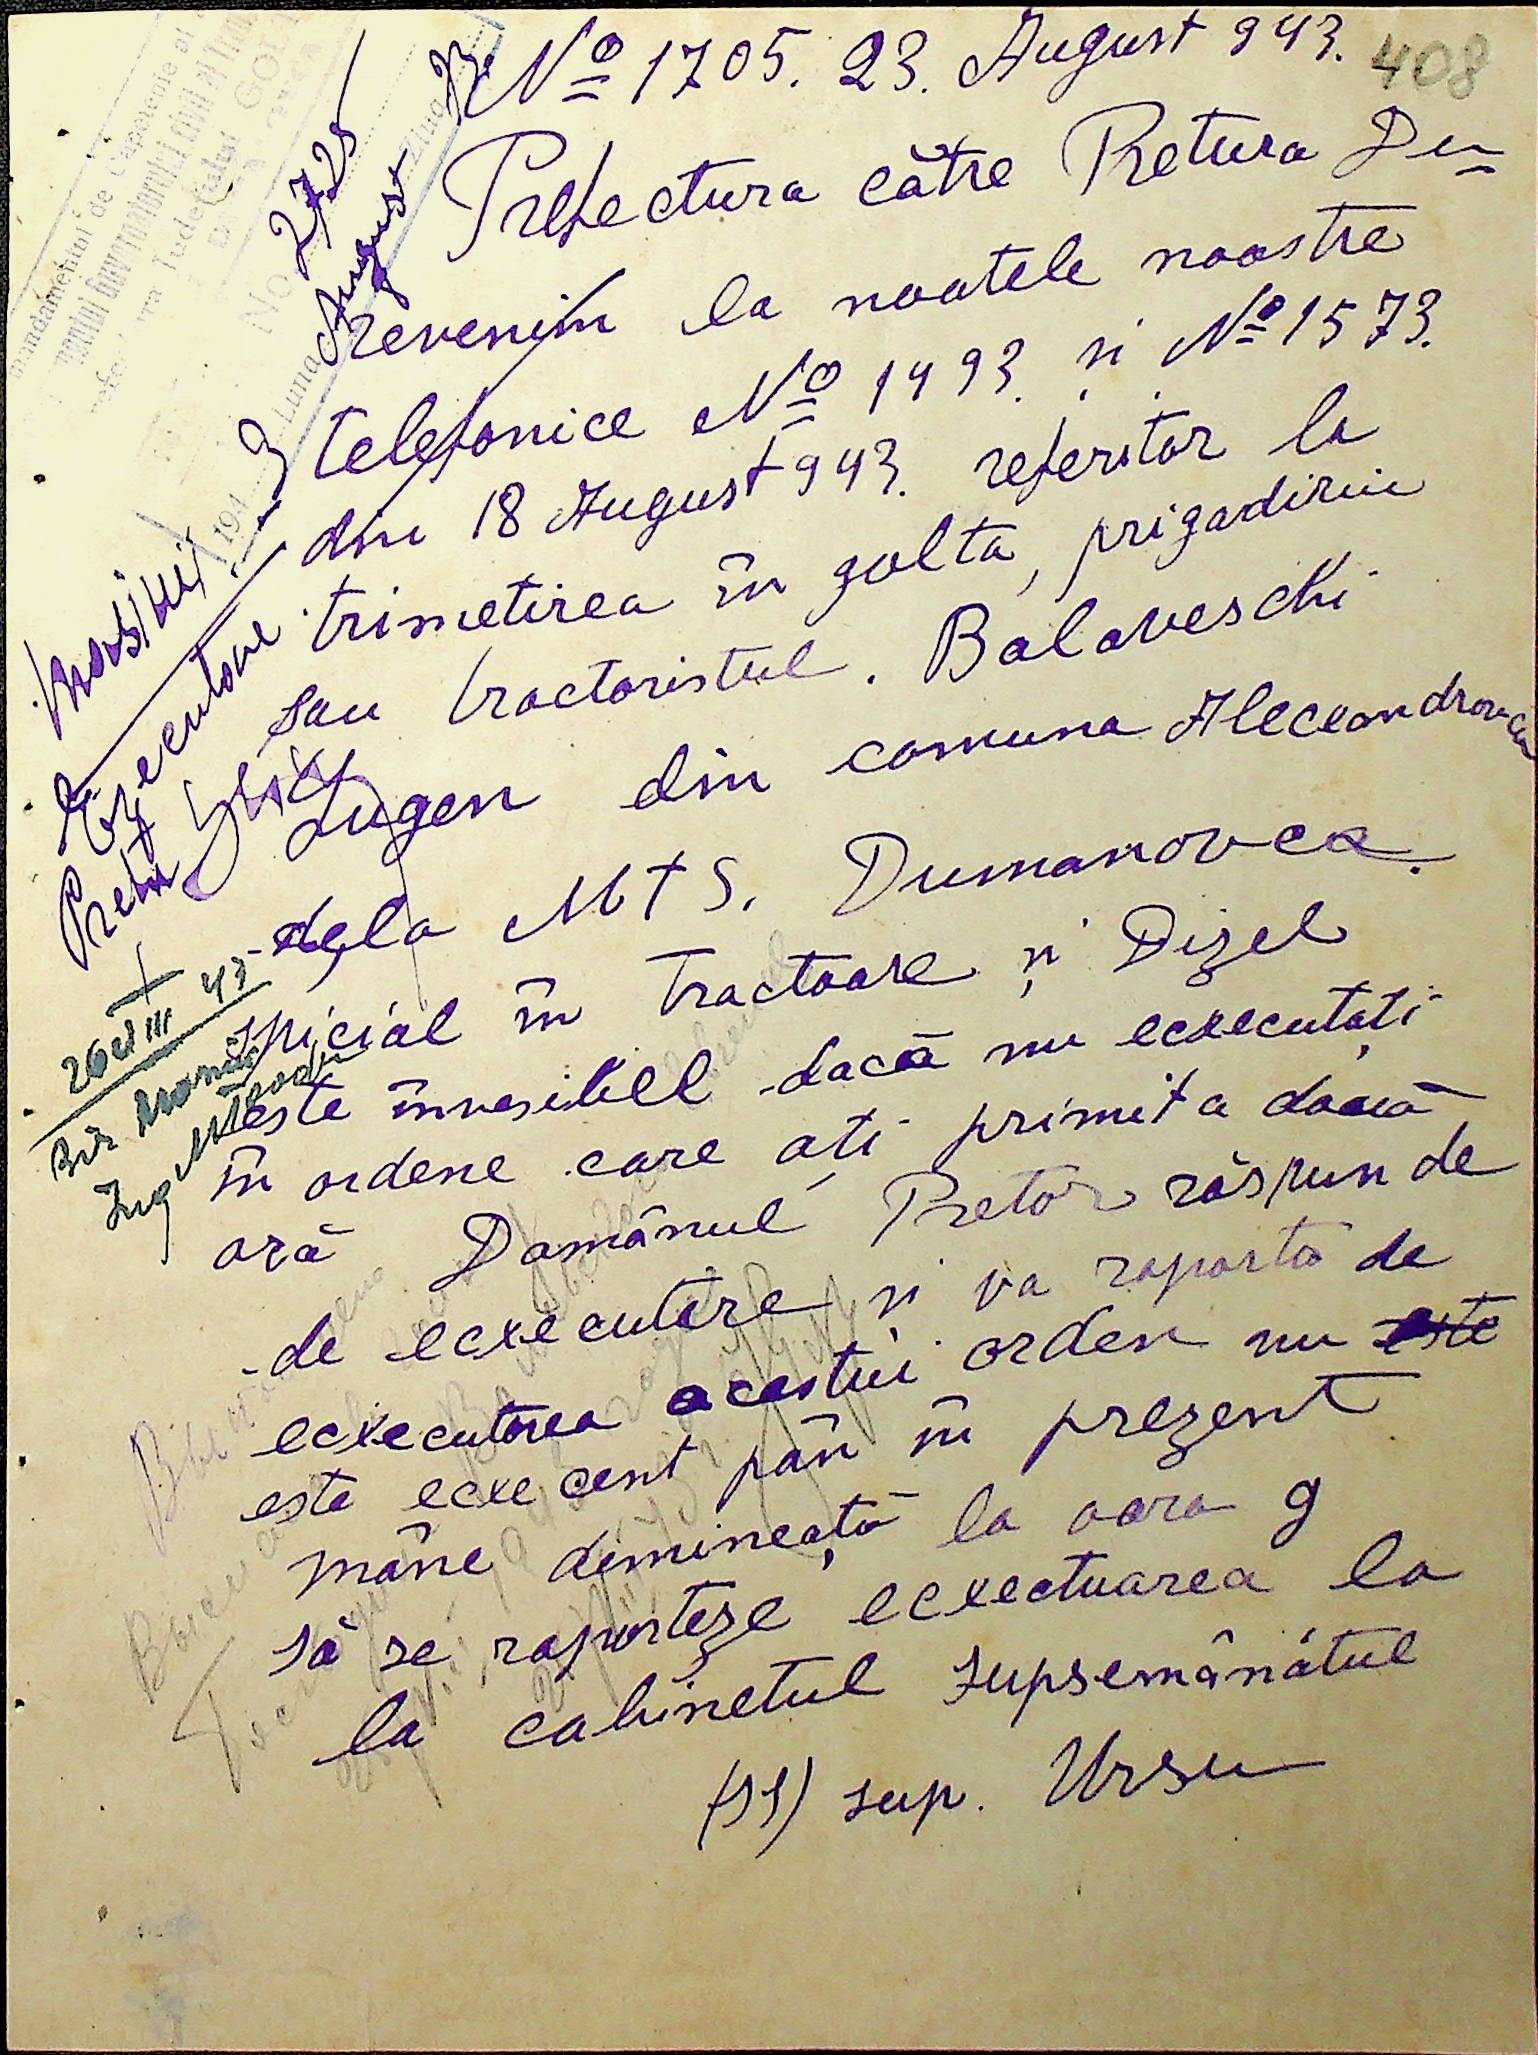 No 1705. 23. August 943.
408
Prefectura către Pretura Du=
revenim la noatele noastre
telefonice No 1493. și No 1573.
din 18 August 943. referitor la
trimetirea în golta, prigadirui
sau tractoristul. Balaveschi
Eugen din comuna Alecxandrovca
dela MTS. Dumanovca.
spicial în tractoare și Dizel
este învesibel dacă nu ecxecutați
în ordene care ați primit a doua
oră Domânul Pretor răspunde
de ecxecutere și va raporta de
ecxecutarea acestui orden nu este
este ecxecent pân în prezent
mâne dimineață la oara 9
să se raporteze ecxectuarea la
la cabinetul supsemânătul
(ss) sup. Ursu
No. 2725
Luna August Ziua
194 3
Executare
Pretor
26 VIII 43